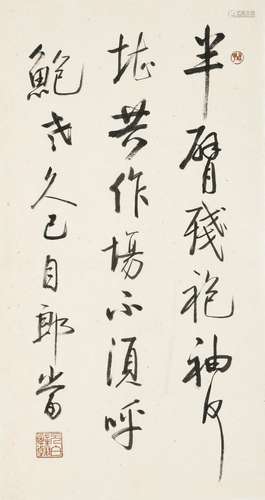 半臂残袍袖何
堪共作場不須呼
鮑老久已自郎當